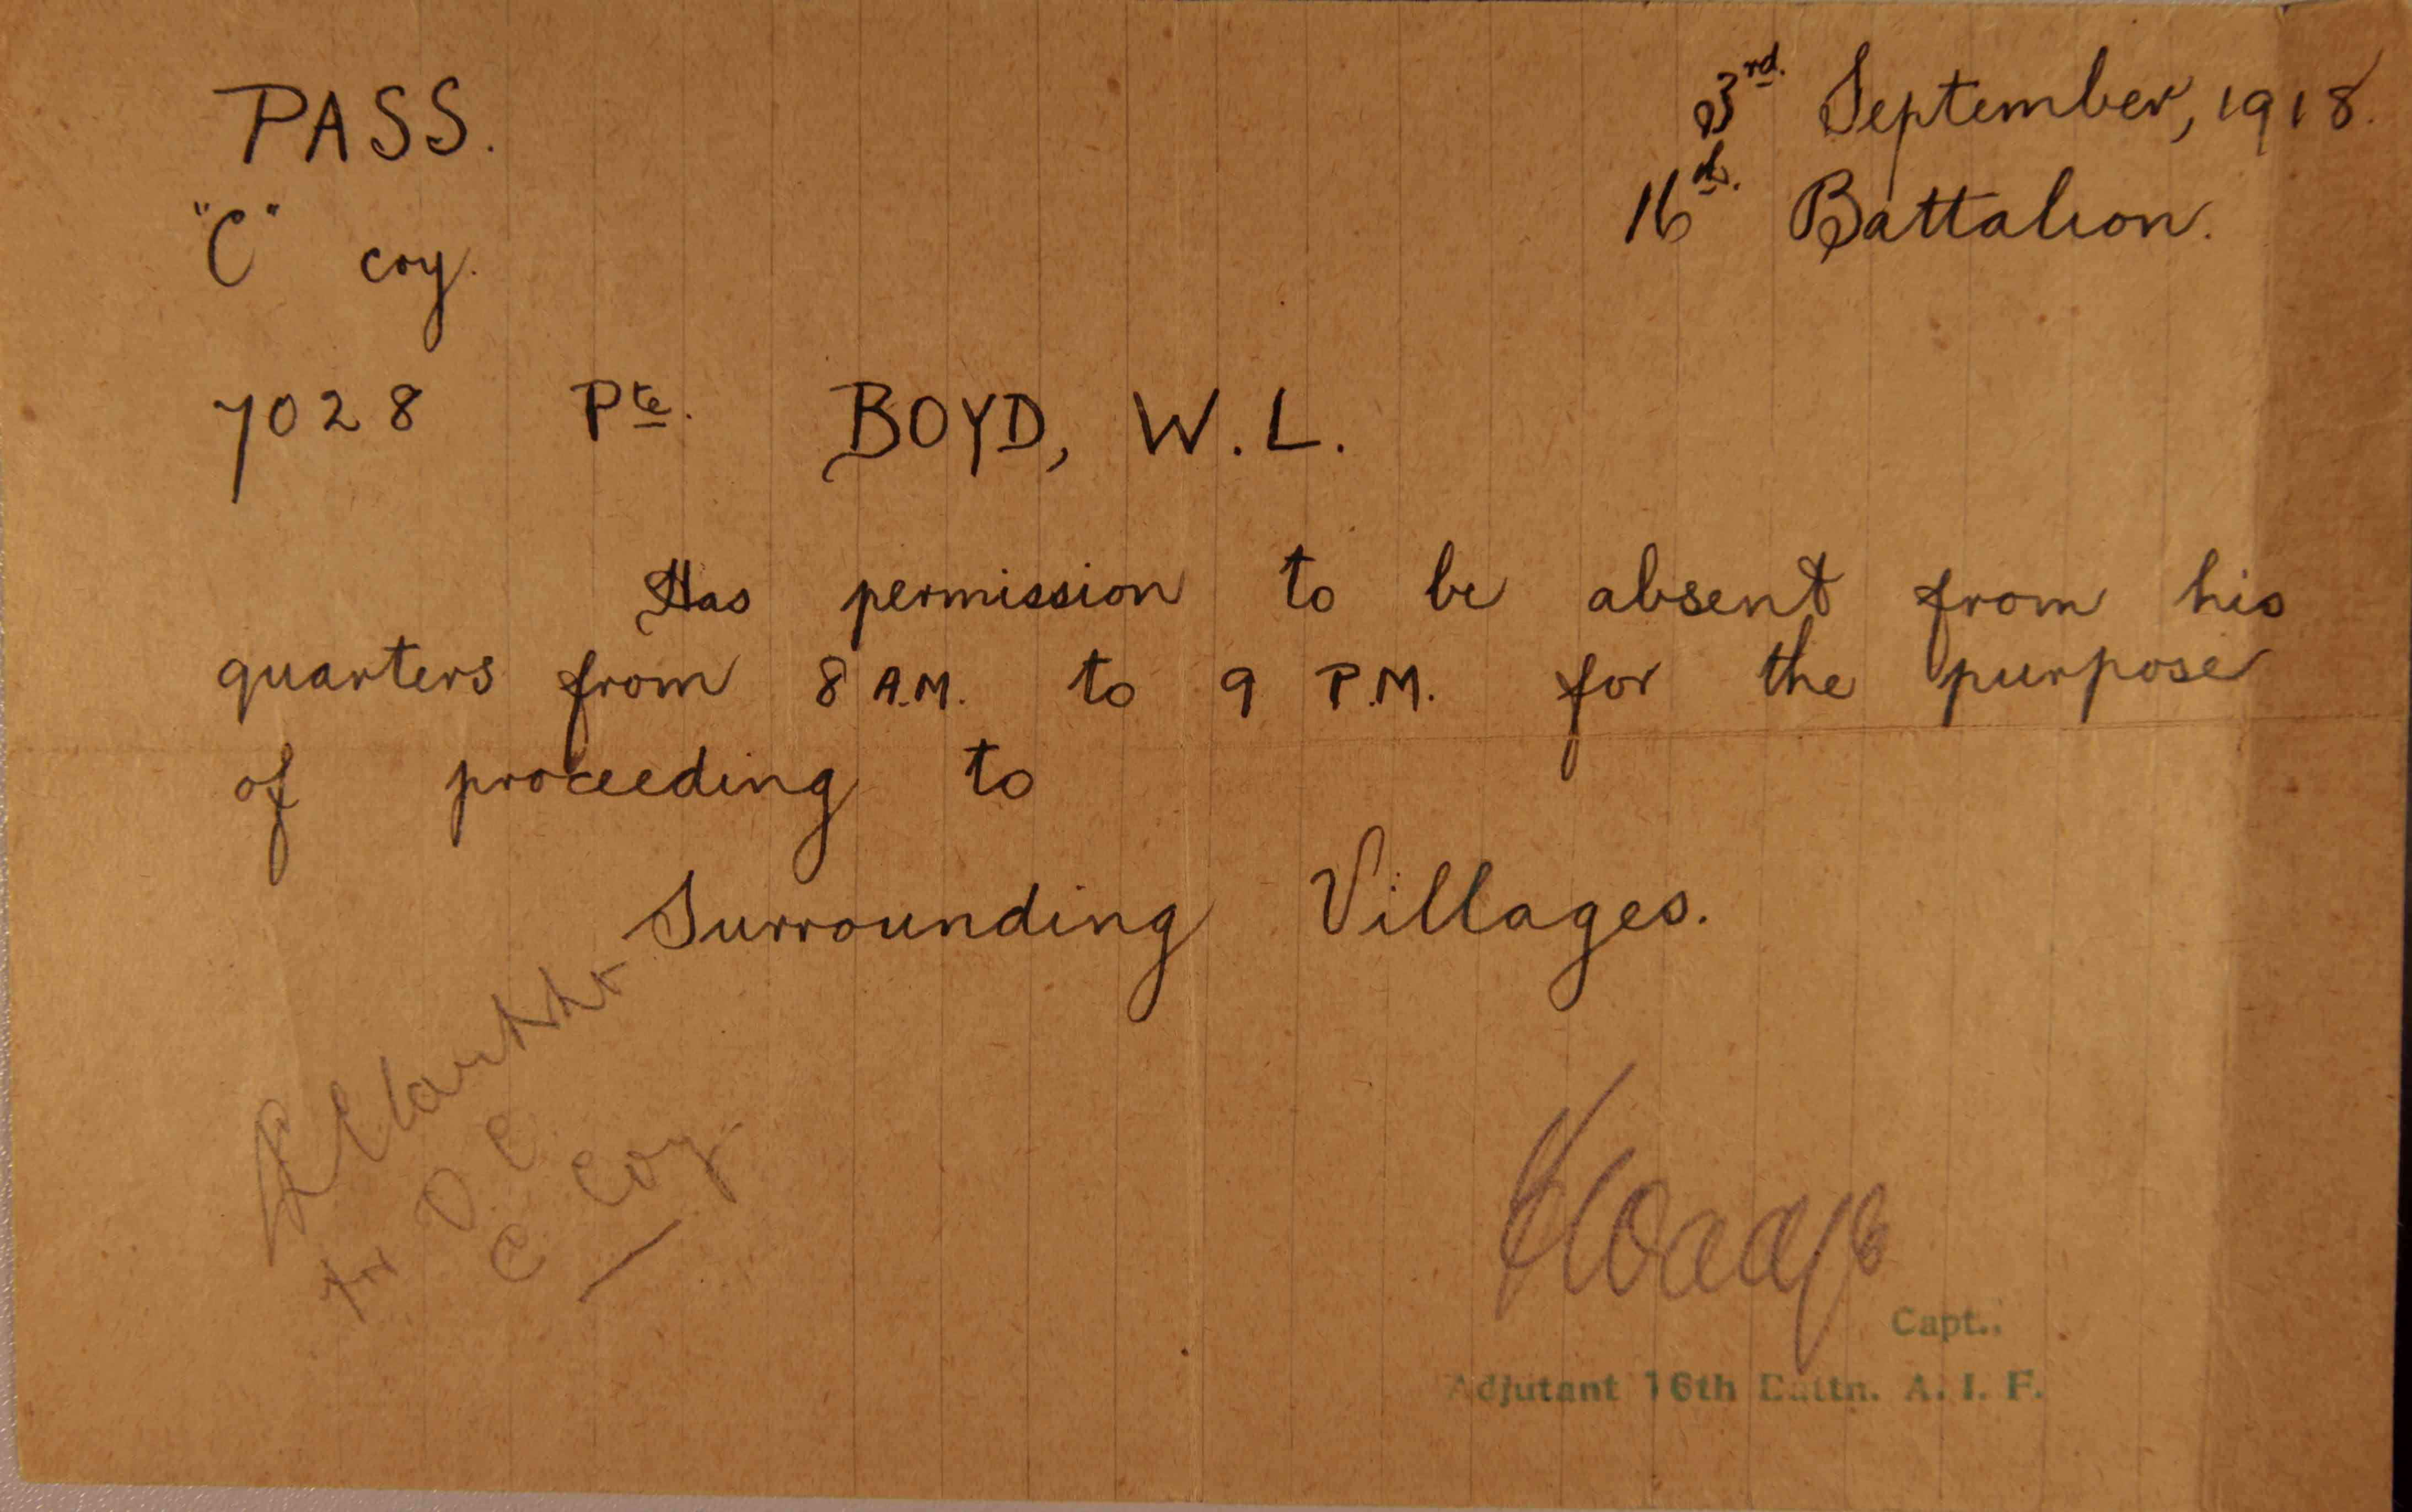 PASS.
23rd. September, 1918.
16th. Battalion.
"C" coy.
7028 Pte. BOYD, W.L.
Has permission to be absent from his
quarters from 8 A.M. to 9 P.M. for the purpose
of proceeding to
Surrounding Villages.
for O C
C Coy
Capt.,
Adjutant 16th Battn. A. I. F.